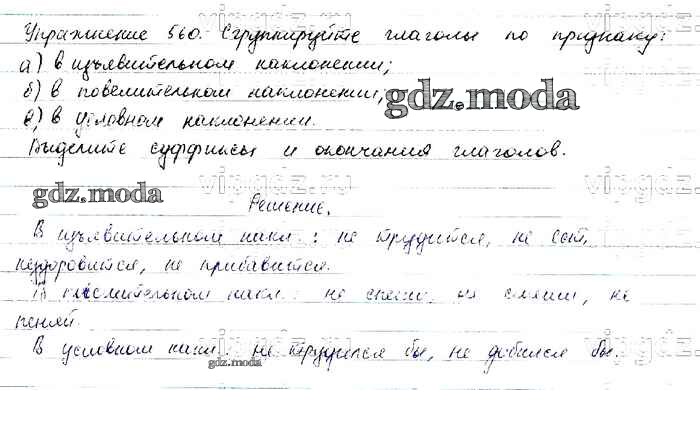 Упражнение 560. Сгруппируйте глаголы по признаку:
а) в изъявительном наклонении;
б) в повелительном наклонении,
в) в условном наклонении.
Выделите суффиксы и окончания глаголов.
Решение.
В изъявительном накл.: не трудится, не
нездоровится, не прибавится.
В накл.: не спеши, не смеши, не
пеняй.
В условном накл.: не трудился бы, не добился бы.
gdz.moda
gdz.moda
gdz.moda
vipgdz.ru
vipgdz.ru